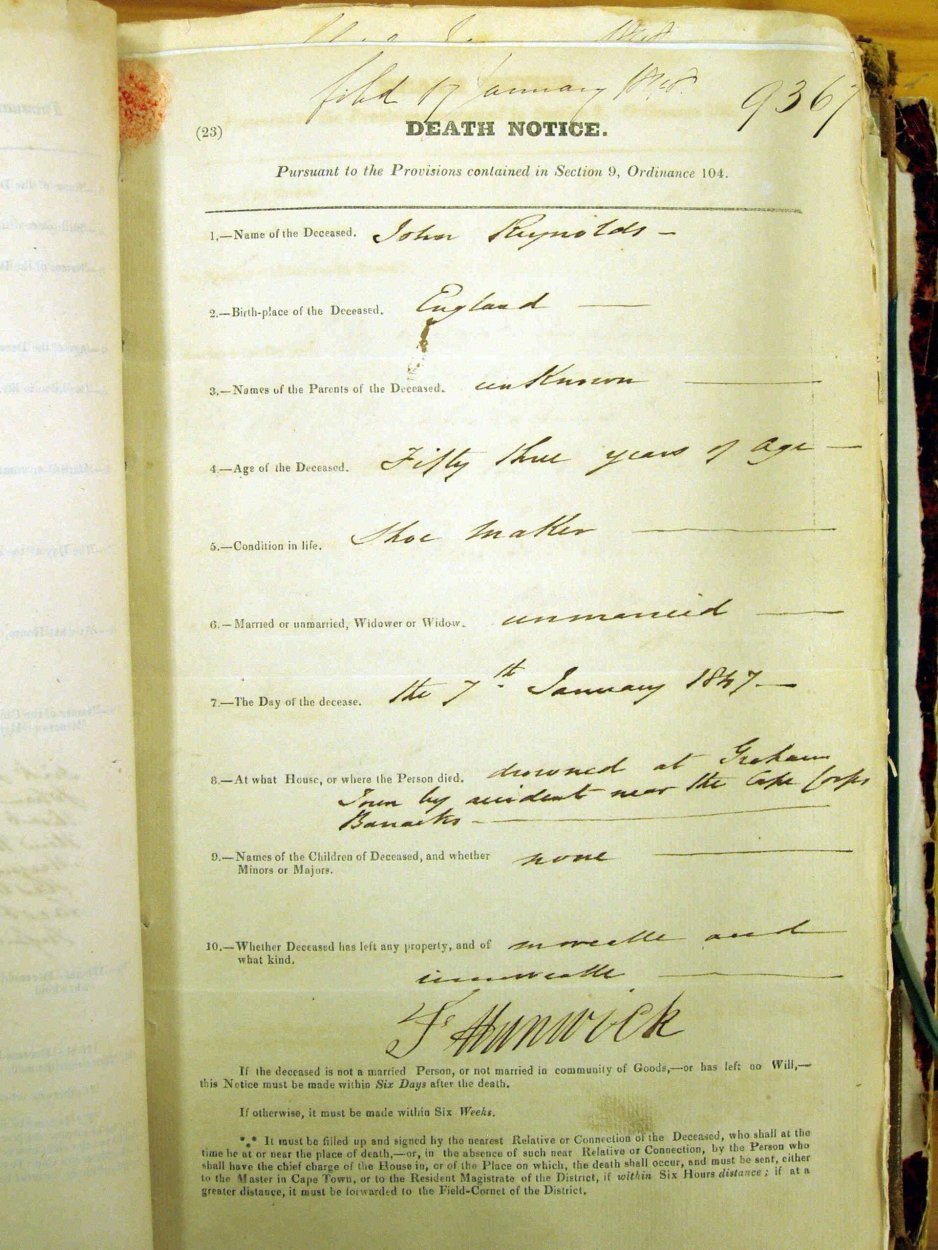 filed 17 January
9367
(23)
DEATH NOTICE.
Pursuant to the Provisions contained in Section 9, Ordinance 104.
1,—Name of the Deceased. John Reynolds —
2.—Birth-place of the Deceased. England —
3.—Names of the Parents of the Deceased. unKnown —
4.—Age of the Deceased. Fifty three years of age —
5.—Condition in life. Shoe maKer —
6.—Married or unmarried, Widower or Widow. unmarried —
7.—The Day of the decease. the 7th January 1847 —
8.—At what House, or where the Person died. drowned at Grahams
Town by accident near the Cape Corps
Barracks —
9.—Names of the Children of Deceased, and whether none —
Minors or Majors.
10.—Whether Deceased has left any property, and of moveable and
what kind. immoveable —
Hunwick
If the deceased is not a married Person, or not married in community of Goods,—or has left no Will,—
this Notice must be made within Six Days after the death.
If otherwise, it must be made within Six Weeks.
*.* It must be filled up and signed by the nearest Relative or Connection of the Deceased, who shall at the
time be at or near the place of death,—or, in the absence of such near Relative or Connection, by the Person who
shall have the chief charge of the House in, or of the Place on which, the death shall occur, and must be sent, either
to the Master in Cape Town, or to the Resident Magistrate of the District, if within Six Hours distance; if at a
greater distance, it must be forwarded to the Field-Cornet of the District.